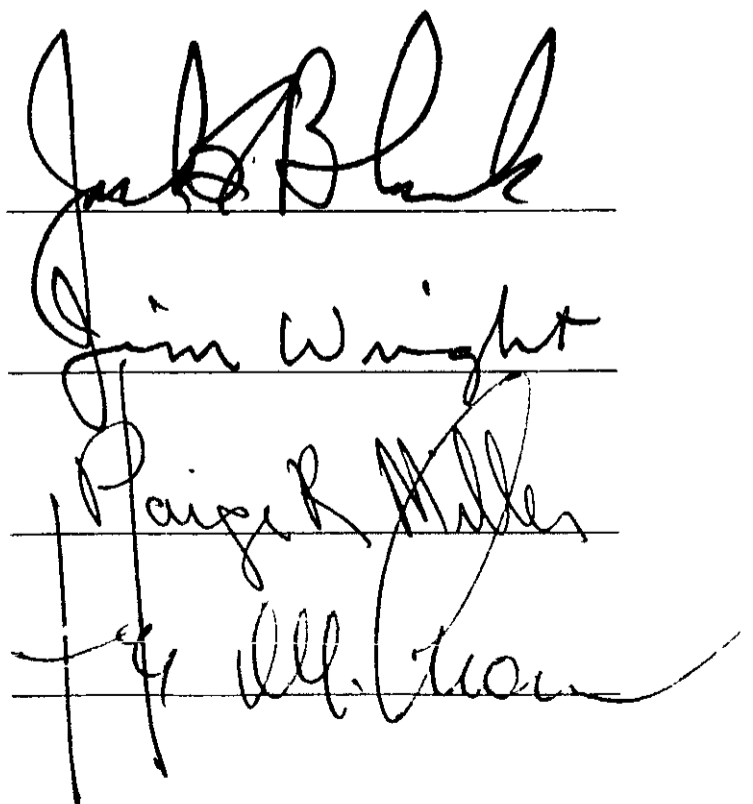 Jack Block
Jim Wright
Paige R Miller
M.